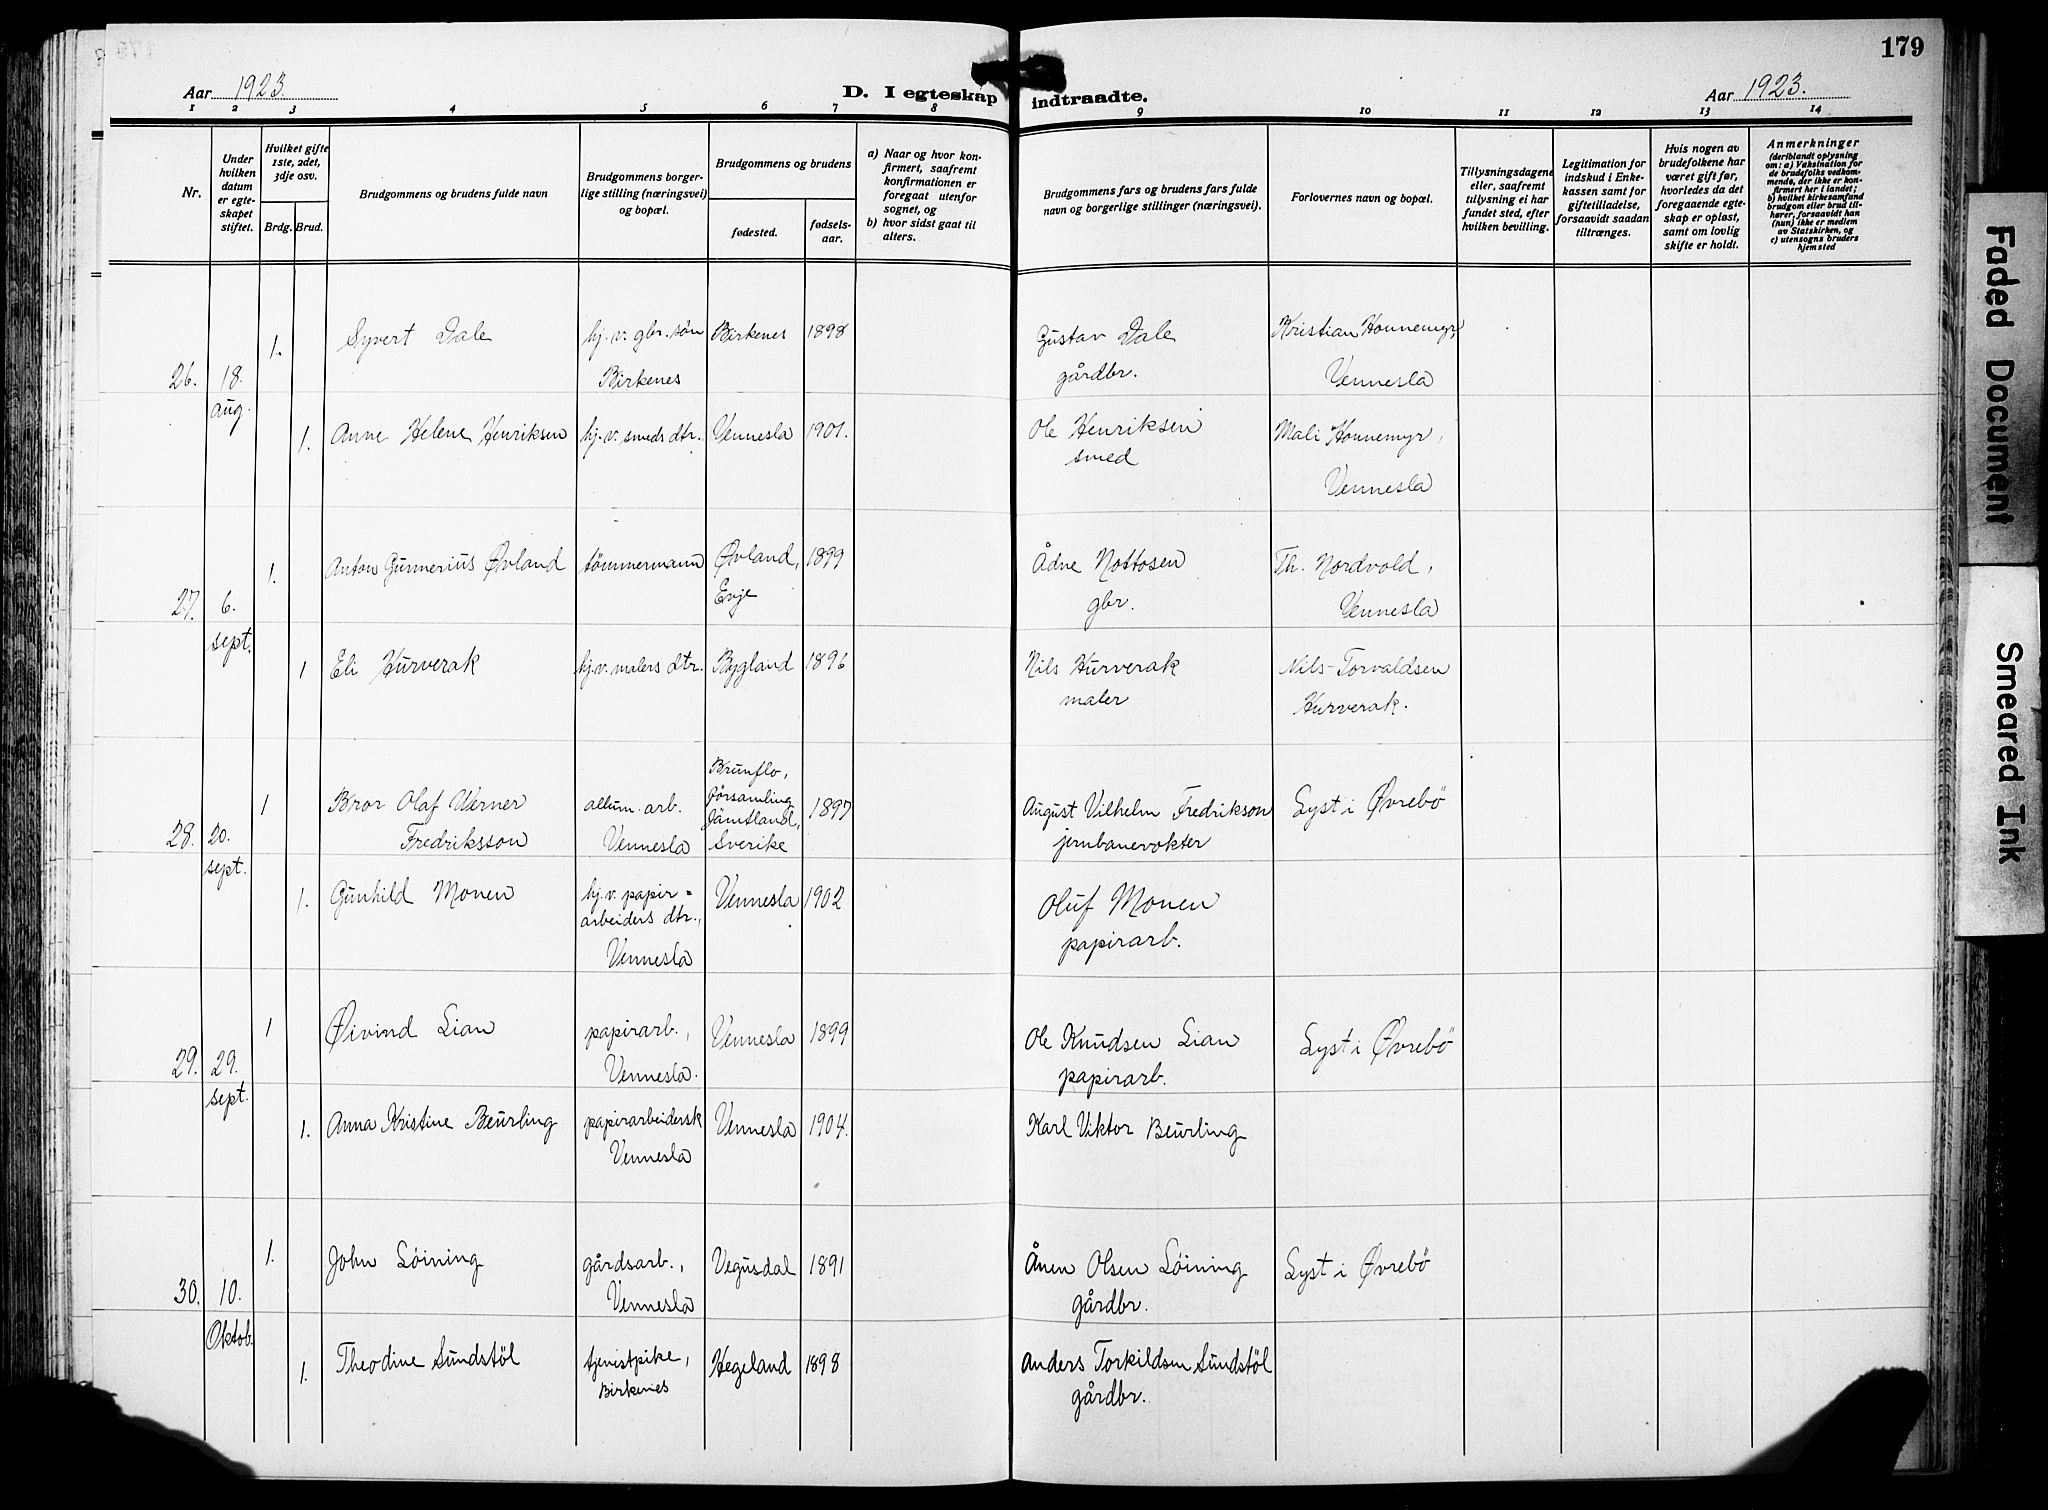 179
Aar 1923.
D. I egteskap indtraadte.
Aar 1923.
1 2 3 4 5 6 7 8 9 10 11 12 13 14
Nr.
Under hvilken datum er egteskapet stiftet.
Hvilket gifte 1ste, 2det, 3dje osv.
Brdg. Brud.
Brudgommens og brudens fulde navn
Brudgommens borgerlige stilling (næringsvei) og bopæl.
Brudgommens og brudens
fødested.
fødselsaar.
a) Naar og hvor konfirmert, saafremt konfirmationen er foregaat utenfor sognet, og
b) hvor sidst gaat til alters.
Brudgommens fars og brudens fars fulde navn og borgerlige stillinger (næringsvei).
Forlovernes navn og bopæl.
Tillysningsdagene eller, saafremt tillysning ei har fundet sted, efter hvilken bevilling.
Legitimation for indskud i Enkekassen samt for giftetilladelse, forsaavidt saadan tiltrænges.
Hvis nogen av brudefolkene har været gift før, hvorledes da det foregaaende egteskap er opløst, samt om lovlig skifte er holdt.
Anmerkninger
(deriblandt oplysning om: a) Vaksination for de brudefolks vedkommende, der ikke er konfirmert her i landet; b) hvilket kirkesamfund brudgom eller brud tilhører, forsaavidt han (hun) ikke er medlem av Statskirken, og c) utensogns bruders hjemsted
26. 18. aug.
1. Syvert Dale
hj. v. gbr. søn
Birkenes
Birkenes 1898
Gustav Dale
gårdbr.
Kristian Honnemyr,
Vennesla
1. Anne Helene Henriksen
hj. v. smeds dtr.
Vennesla 1901.
Ole Henriksen
smed
Mali Honnemyr,
Vennesla
27. 6. sept.
1. Anton Gunnerius Øvland
tømmermann
Øvland,
Evje
1899
Ådne Nottosen
gbr.
Th. Nordvold,
Vennesla
1 Eli Hurverak
hj. v. malers dtr.
Bygland 1896
Nils Hurverak
maler
Nils Torvaldsen
Hurverak.
28. 20. sept.
1 Bror Olaf Werner
Fredriksson
allum. arb.
Vennesla
Brunflo,
Församling
Jämtland,
Sverike
1897
August Vilhelm Fredrikson
jernbanevokter
Lyst i Øvrebö
1. Gunhild Monen
hj. v. papir=
arbeiders dtr.,
Vennesla
Vennesla 1902
Oluf Monen
papirarb.
29. 29. sept.
1 Øivind Lian
papirarb.,
Vennesla.
Vennesla 1899
Ole Knudsen Lian
papirarb.
Lyst i Øvrebö
1. Anna Kristine Beurling
papirarbeidersk
Vennesla
Vennesla 1904.
Karl Viktor Beurling
30. 10. Oktob.
1. John Löining
gårdsarb.,
Vennesla
Vegusdal 1891
Ånen Olsen Löining
gårdbr.
Lyst i Øvrebö
1. Theodine Sundstöl
tjenistpike,
Birkenes
Hegeland 1898
Anders Torkildsen Sundstöl
gårdbr.
Faded Document
Smeared Ink